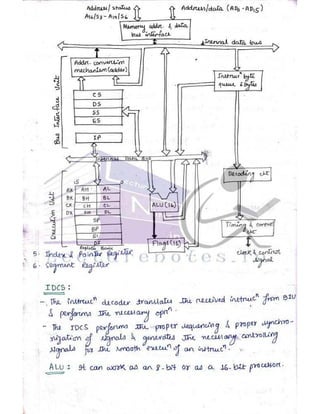 Address/status
A16/S3 - A19/S6
Address/data (AD0 - AD15)
Memory addr. & data
bus interface
Internal data bus
Addr. conversion
mechanism (adder)
Instrucⁿ byte
queue 6 bytes
Bus Interface Unit
CS
DS
SS
ES
IP
Decoding ckt
Execution Unit
15
AX AH AL
BX BH BL
CX CH CL
DX DH DL
SP
BP
SI
DI
ALU (16)
Flags (16)
Timing & control
ckt
clock & control
signal
5. Index & Pointer Register
6. Segment Register
IDCS :
- The instrucⁿ decoder translates the received instrucⁿ from BIU
& performs the necessary oprⁿ.
- The IDCS performs the proper sequencing & proper synchro-
nization of signals & generates the necessary controlling
signals for the smooth execuⁿ of an instrucⁿ.
ALU : It can work as an 8-bit or as a 16-bit processor.